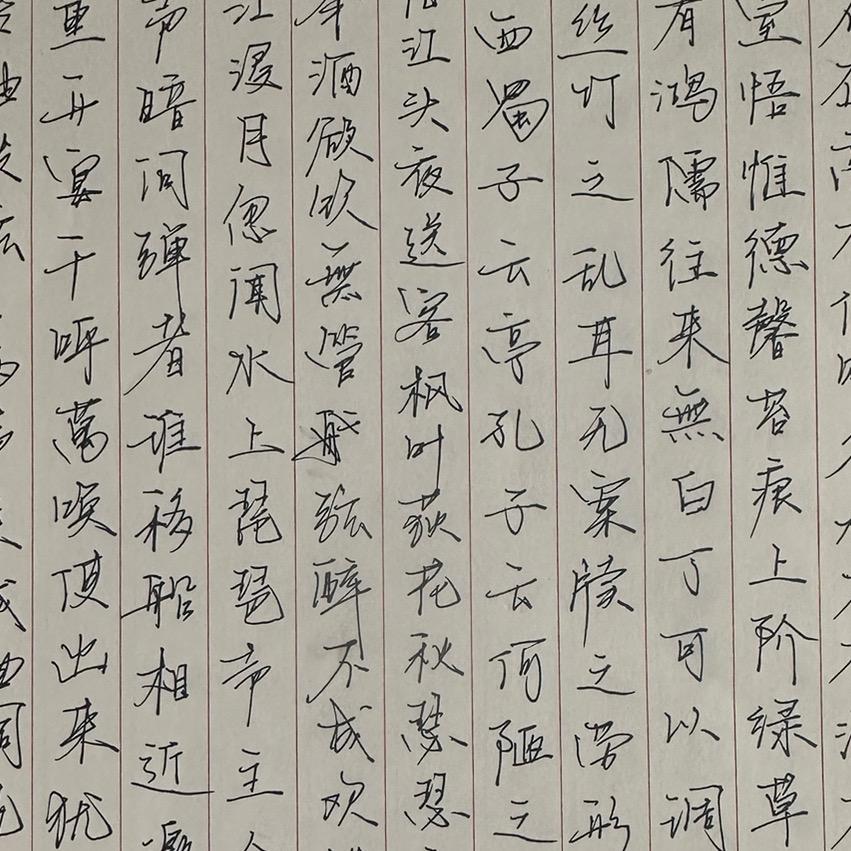 室悟惟德馨苔痕上阶绿草
有鸿儒往来無白丁可以调
丝竹之乱耳无案牍之劳形
西蜀子云亭孔子云何陋之
江头夜送客枫叶荻花秋瑟瑟
酒欲饮無管弦醉不成欢
江浸月忽闻水上琵琶声主
声暗问弹者谁移船相近
重开宴千呼萬唤使出来犹